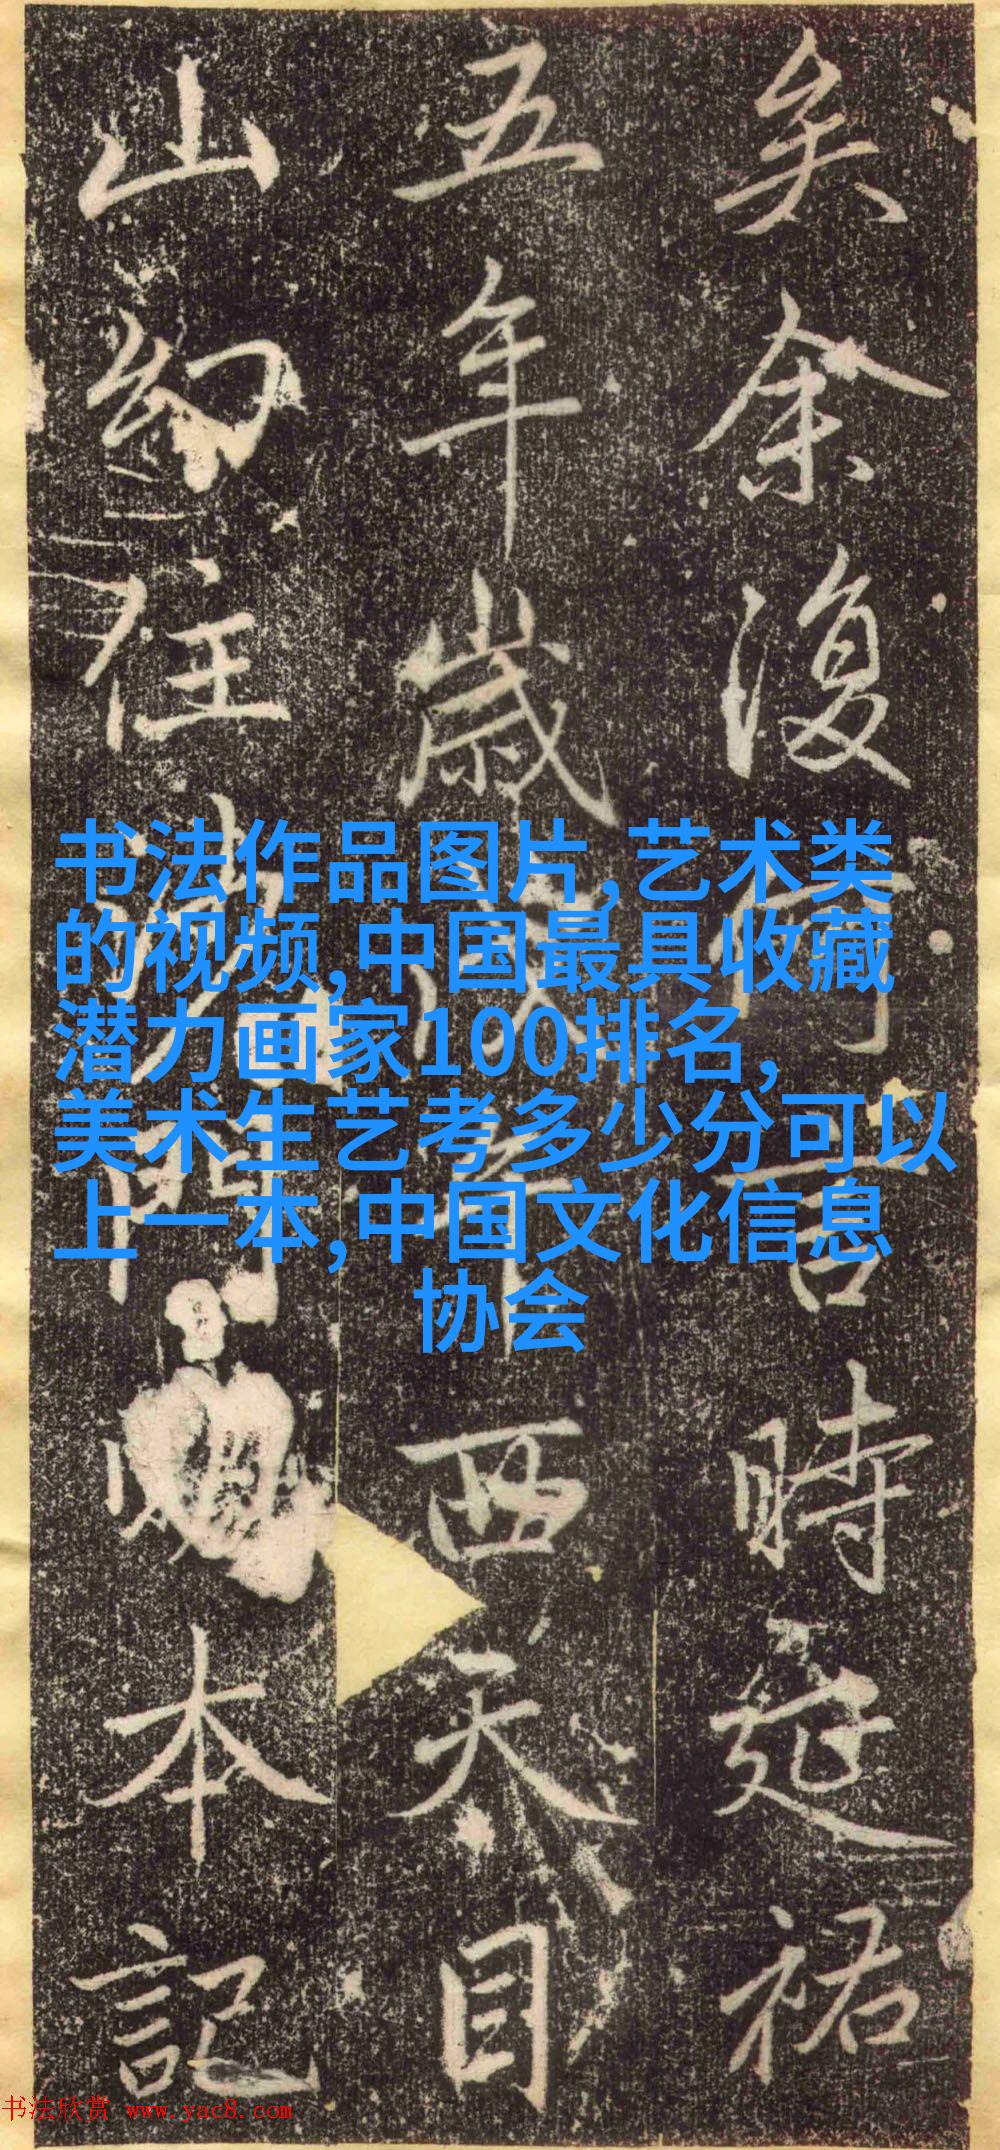 矣余復何言時延祐
五年歲戊午西天目
山幻住沙門明本記
书法作品图片,艺术类
的视频,中国最具收藏
潜力画家100排名,
美术生艺考多少分可以
上一本,中国文化信息
协会
书法欣赏 www.yac8.com